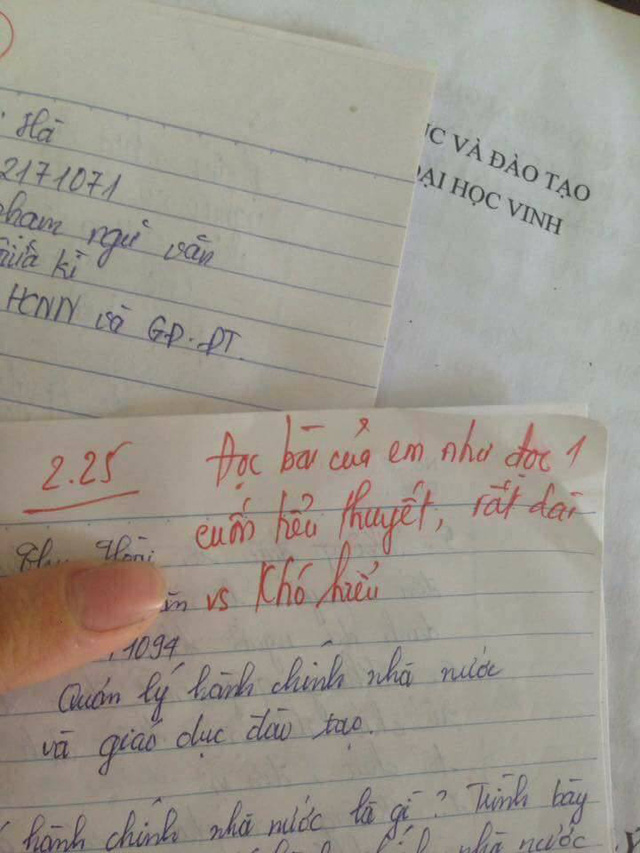 Hà
2171071
phạm ngữ văn
giữa kì
HCNN và GD.ĐT.
ỤC VÀ ĐÀO TẠO
ĐẠI HỌC VINH
2.25
Đọc bài của em như đọc 1
cuốn tiểu thuyết, rất dài
vs Khó hiểu
1094
Quản lý hành chính nhà nước
và giáo dục đào tạo.
hành chính nhà nước là gì? Trình bày
nhà nước